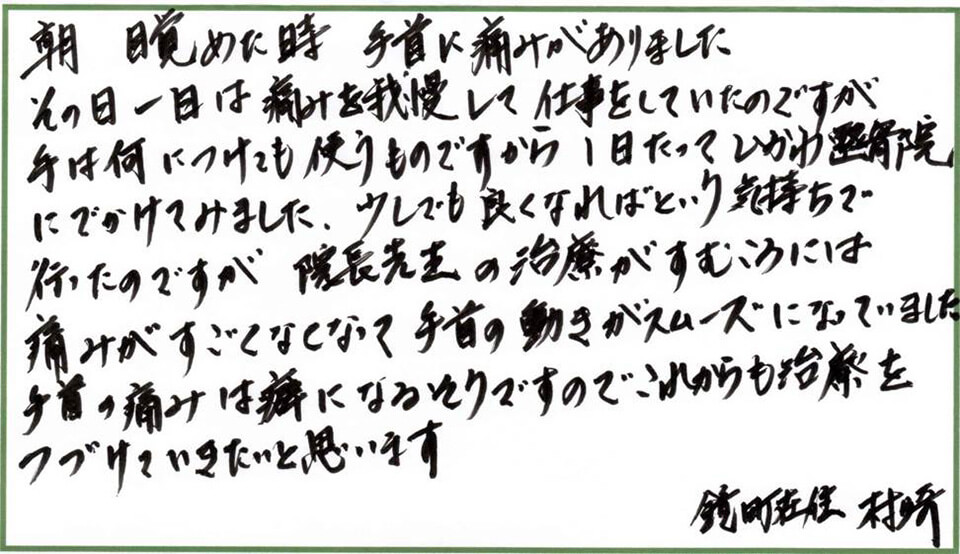 朝　目覚めた時　手首に痛みがありました
その日一日は痛みを我慢して仕事をしていたのですが
手は何につけても使うものですから 1日たってひかわ整骨院
にでかけてみました、少しでも良くなればという気持ちで
行ったのですが　院長先生の治療がすむころには
痛みがすごくなくなって手首の動きがスムーズになっていました
手首の痛みは癖になるそうですのでこれからも治療を
つづけていきたいと思います
鏡町在住　村崎